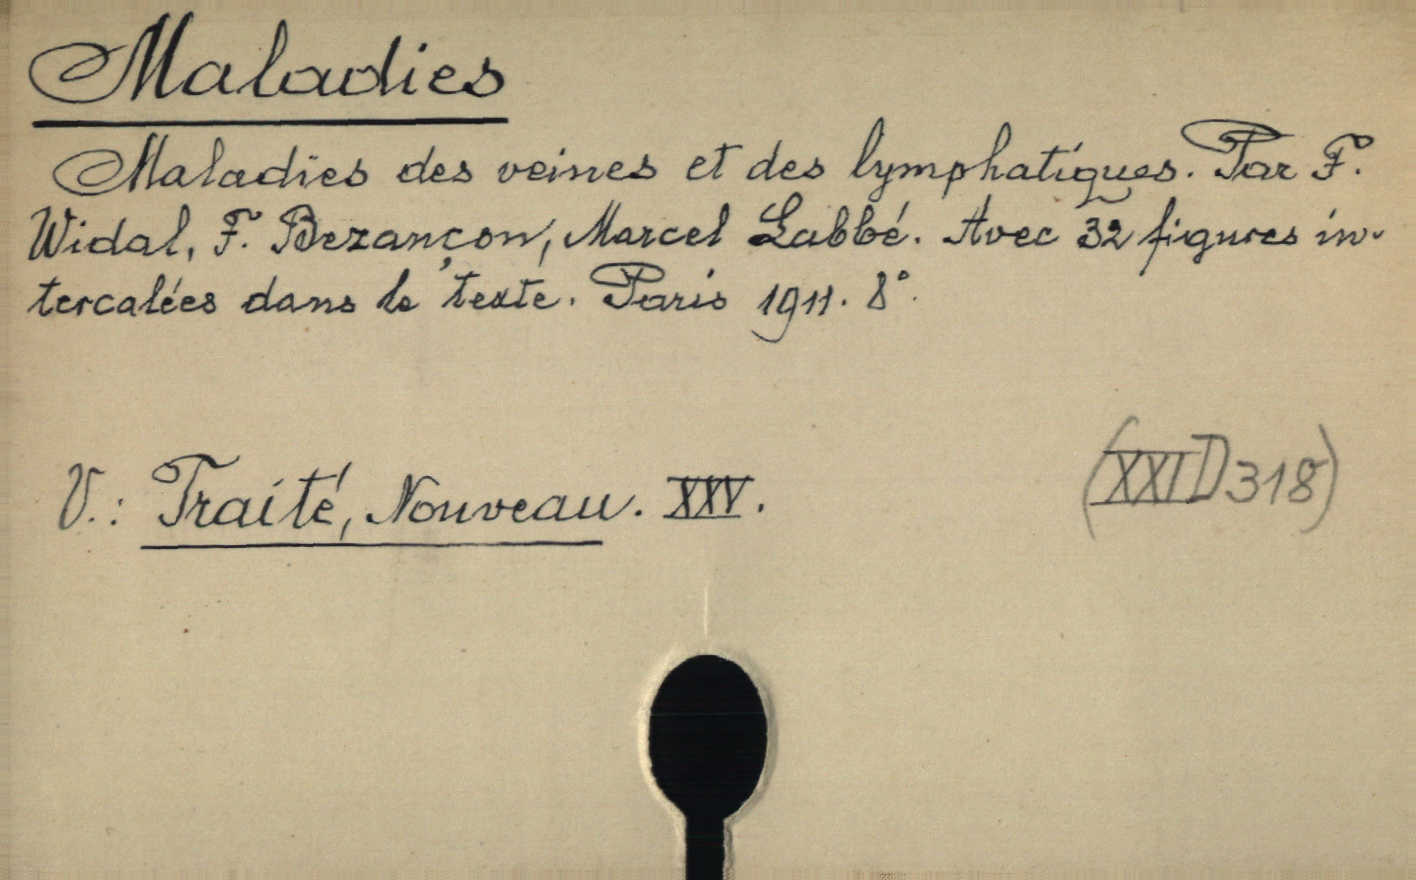 Maladies
Maladies des veines et des lymphatiques. Par F.
Widal, F. Bezançon, Marcel Labbé. Avec 32 figures in-
tercalées dans le texte. Paris 1911. 8°.
V.: Traité, Nouveau. XXV.
(XXI D 318)